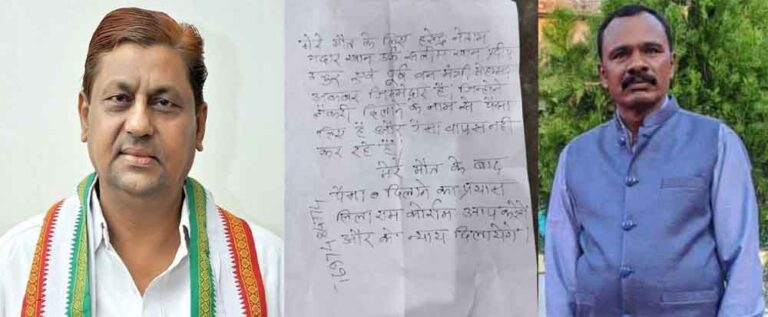 मेरे मौत के लिए हरेन्द्र नेताम
मदार खान उर्फ सलीम खान, प्रदीप
ठाकुर एवं पूर्व वन मंत्री मोहम्मद
अकबर जिम्मेदार हैं। जिन्होंने
नौकरी दिलाने के नाम से पैसा
लिए हैं और पैसा वापस नहीं
कर रहे हैं
मेरे मौत के बाद
पैसा दिलाने का प्रयास
लिलाराम कोर्राम आप करेंगे
और न्याय दिलायेंगे।